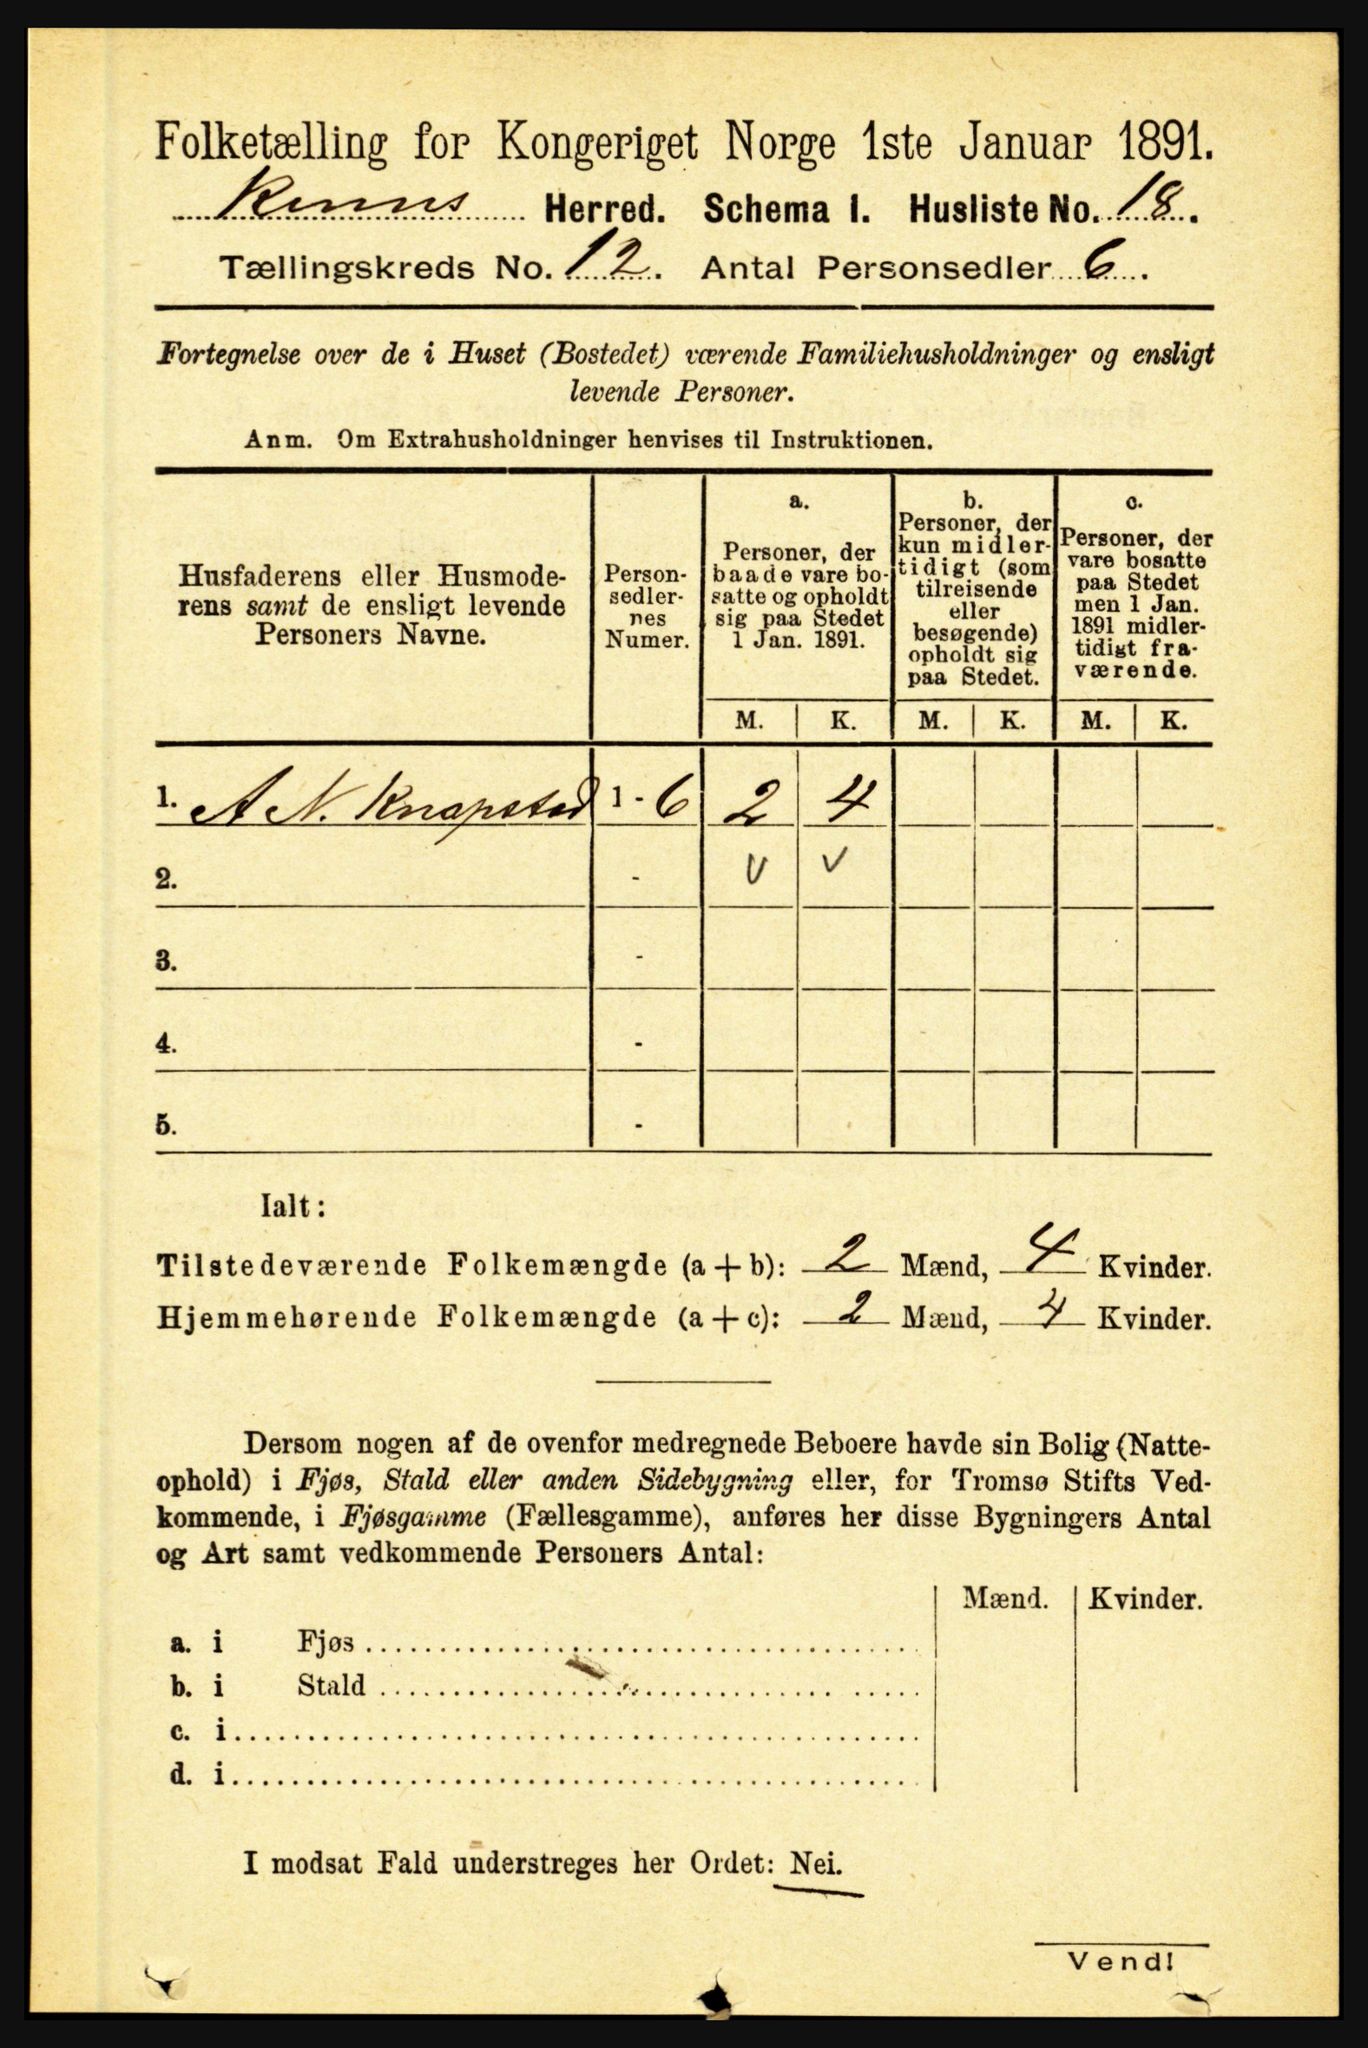 Folketælling for Kongeriget Norge 1ste Januar 1891.
Kinns Herred. Schema I. Husliste No. 18.
Tællingskreds No. 12. Antal Personsedler 6.
Fortegnelse over de i Huset (Bostedet) værende Familiehusholdninger og ensligt
levende Personer.
Anm. Om Extrahusholdninger henvises til Instruktionen.
Husfaderens eller Husmode-
rens samt de ensligt levende
Personers Navne.
Person-
sedler-
nes
Numer.
a.
Personer, der
baade vare bo-
satte og opholdt
sig paa Stedet
1 Jan. 1891.
b.
Personer, der
kun midler-
tidigt (som
tilreisende
eller
besøgende)
opholdt sig
paa Stedet.
c.
Personer, der
vare bosatte
paa Stedet
men 1 Jan.
1891 midler-
tidigt fra-
værende.
M. K. M. K. M. K.
1. A N. Knapstad 1 - 6 2 4
2. - v v
3. -
4. -
5. -
Ialt:
Tilstedeværende Folkemængde (a + b): 2 Mænd, 4 Kvinder.
Hjemmehørende Folkemængde (a + c): 2 Mænd, 4 Kvinder.
Dersom nogen af de ovenfor medregnede Beboere havde sin Bolig (Natte-
ophold) i Fjøs, Stald eller anden Sidebygning eller, for Tromsø Stifts Ved-
kommende, i Fjøsgamme (Fællesgamme), anføres her disse Bygningers Antal
og Art samt vedkommende Personers Antal:
Mænd. Kvinder.
a. i Fjøs
b. i Stald
c. i
d. i
I modsat Fald understreges her Ordet: Nei.
Vend!